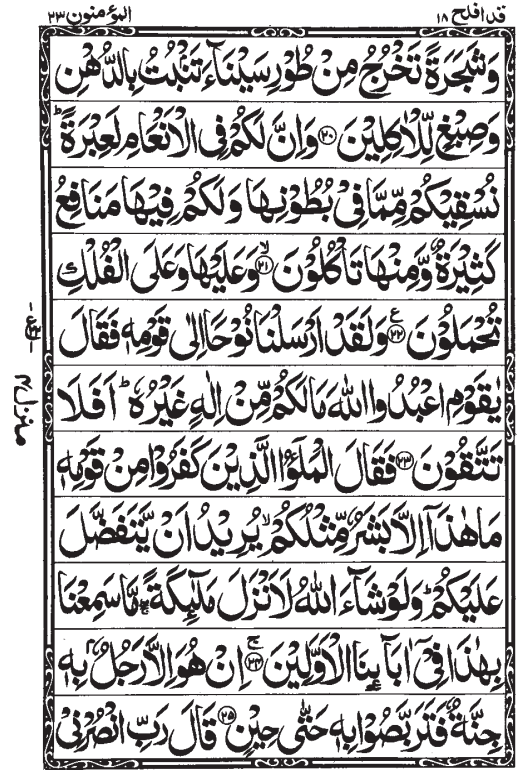 قد افلح ١٨
المؤمنون ٢٣
وَشَجَرَةً تَخْرُجُ مِنْ طُوْرِ سَيْنَآءَ تَنْۢبُتُ بِالدُّهْنِ
وَصِبْغٍ لِّلْاٰكِلِيْنَ ﴿٢٠﴾ وَاِنَّ لَكُمْ فِى الْاَنْعَامِ لَعِبْرَةً ؕ
نُسْقِيْكُمْ مِّمَّا فِىْ بُطُوْنِهَا وَلَكُمْ فِيْهَا مَنَافِعُ
كَثِيْرَةٌ وَّمِنْهَا تَاْكُلُوْنَ ﴿٢١﴾ ۙ وَعَلَيْهَا وَعَلَى الْفُلْكِ
تُحْمَلُوْنَ ﴿٢٢﴾ ع وَلَقَدْ اَرْسَلْنَا نُوْحًا اِلٰى قَوْمِهٖ فَقَالَ
يٰقَوْمِ اعْبُدُوا اللّٰهَ مَا لَكُمْ مِّنْ اِلٰهٍ غَيْرُهٗ ؕ اَفَلَا
تَتَّقُوْنَ ﴿٢٣﴾ فَقَالَ الْمَلَؤُا الَّذِيْنَ كَفَرُوْا مِنْ قَوْمِهٖ
مَا هٰذَآ اِلَّا بَشَرٌ مِّثْلُكُمْ ۙ يُرِيْدُ اَنْ يَّتَفَضَّلَ
عَلَيْكُمْ ؕ وَلَوْ شَآءَ اللّٰهُ لَاَنْزَلَ مَلٰٓئِكَةً ۖۚ مَّا سَمِعْنَا
بِهٰذَا فِىْۤ اٰبَآئِنَا الْاَوَّلِيْنَ ﴿٢٤﴾ ۚ اِنْ هُوَ اِلَّا رَجُلٌۢ بِهٖ
جِنَّةٌ فَتَرَبَّصُوْا بِهٖ حَتّٰى حِيْنٍ ﴿٢٥﴾ قَالَ رَبِّ انْصُرْنِىْ
منزل ٤